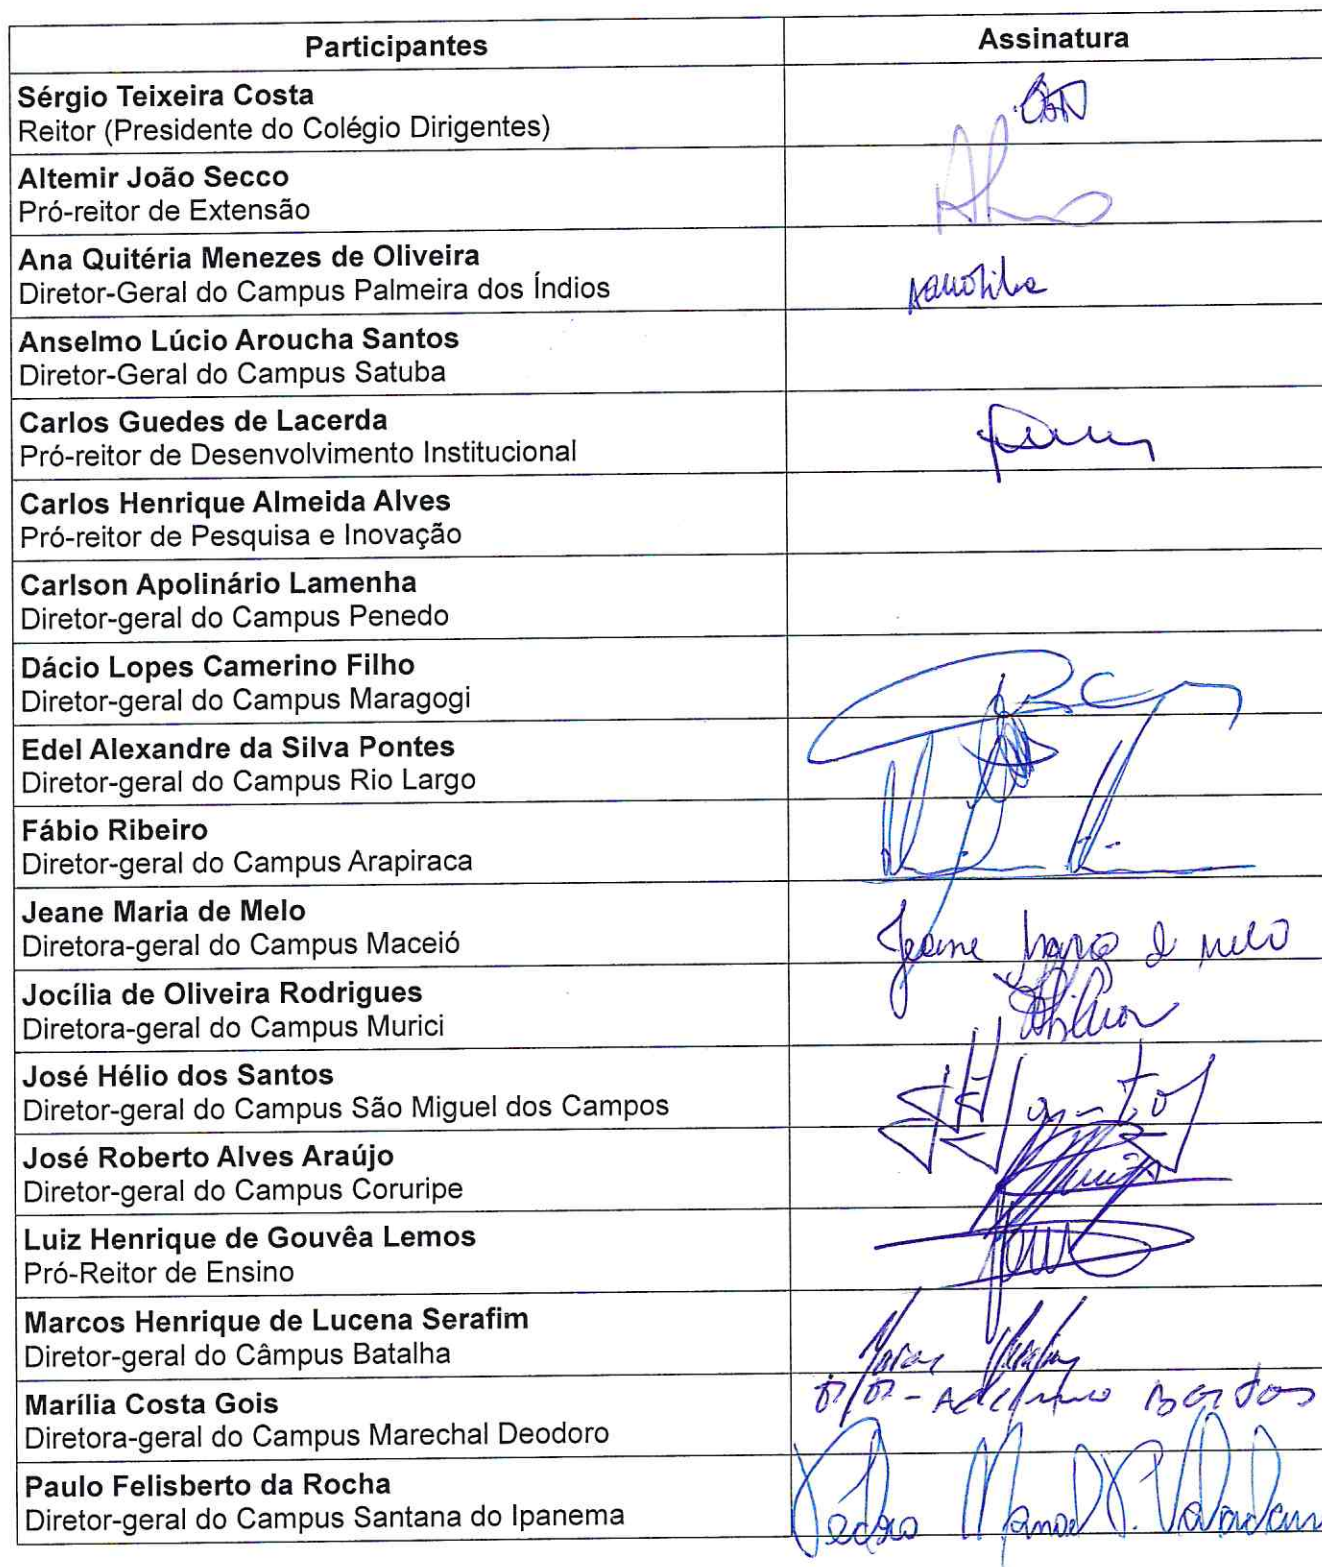 Participantes Assinatura
Sérgio Teixeira Costa
Reitor (Presidente do Colégio Dirigentes)
Altemir João Secco
Pró-reitor de Extensão
Ana Quitéria Menezes de Oliveira
Diretor-Geral do Campus Palmeira dos Índios
Anselmo Lúcio Aroucha Santos
Diretor-Geral do Campus Satuba
Carlos Guedes de Lacerda
Pró-reitor de Desenvolvimento Institucional
Carlos Henrique Almeida Alves
Pró-reitor de Pesquisa e Inovação
Carlson Apolinário Lamenha
Diretor-geral do Campus Penedo
Dácio Lopes Camerino Filho
Diretor-geral do Campus Maragogi
Edel Alexandre da Silva Pontes
Diretor-geral do Campus Rio Largo
Fábio Ribeiro
Diretor-geral do Campus Arapiraca
Jeane Maria de Melo
Diretora-geral do Campus Maceió
Jeane Maria de Melo
Jocília de Oliveira Rodrigues
Diretora-geral do Campus Murici
José Hélio dos Santos
Diretor-geral do Campus São Miguel dos Campos
José Roberto Alves Araújo
Diretor-geral do Campus Coruripe
Luiz Henrique de Gouvêa Lemos
Pró-Reitor de Ensino
Marcos Henrique de Lucena Serafim
Diretor-geral do Câmpus Batalha
Marília Costa Gois
Diretora-geral do Campus Marechal Deodoro
Paulo Felisberto da Rocha
Diretor-geral do Campus Santana do Ipanema
Pedro Manoel